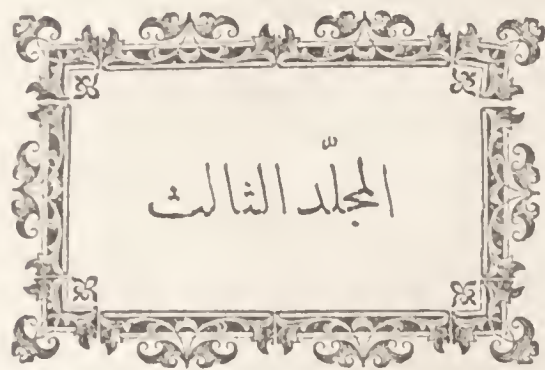 المجلّد الثالث